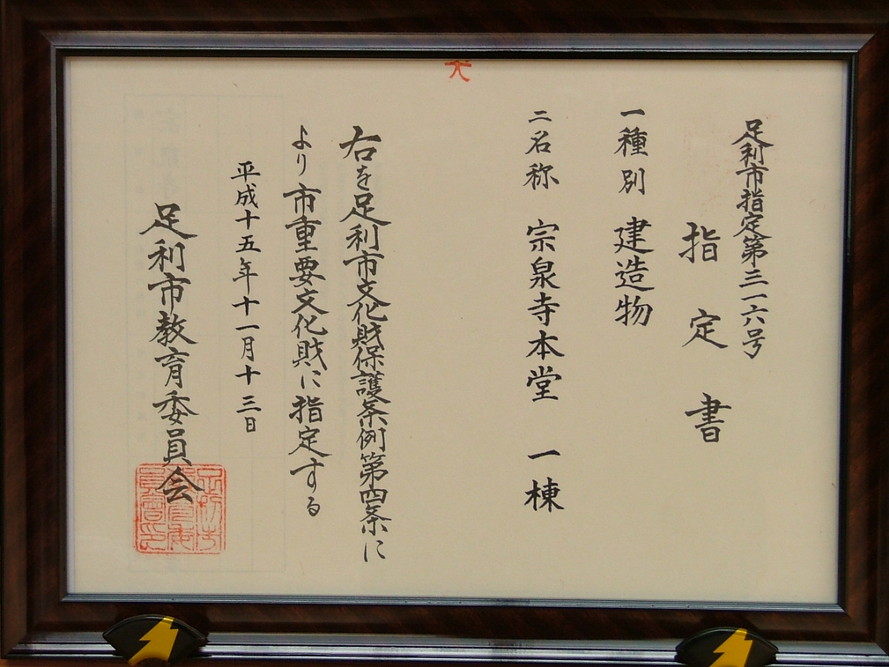 足利市指定第三一六号
指定書
一種別 建造物
二名称 宗泉寺本堂 一棟
右を足利市文化財保護条例第四条に
より市重要文化財に指定する
平成十五年十一月十三日
足利市教育委員会